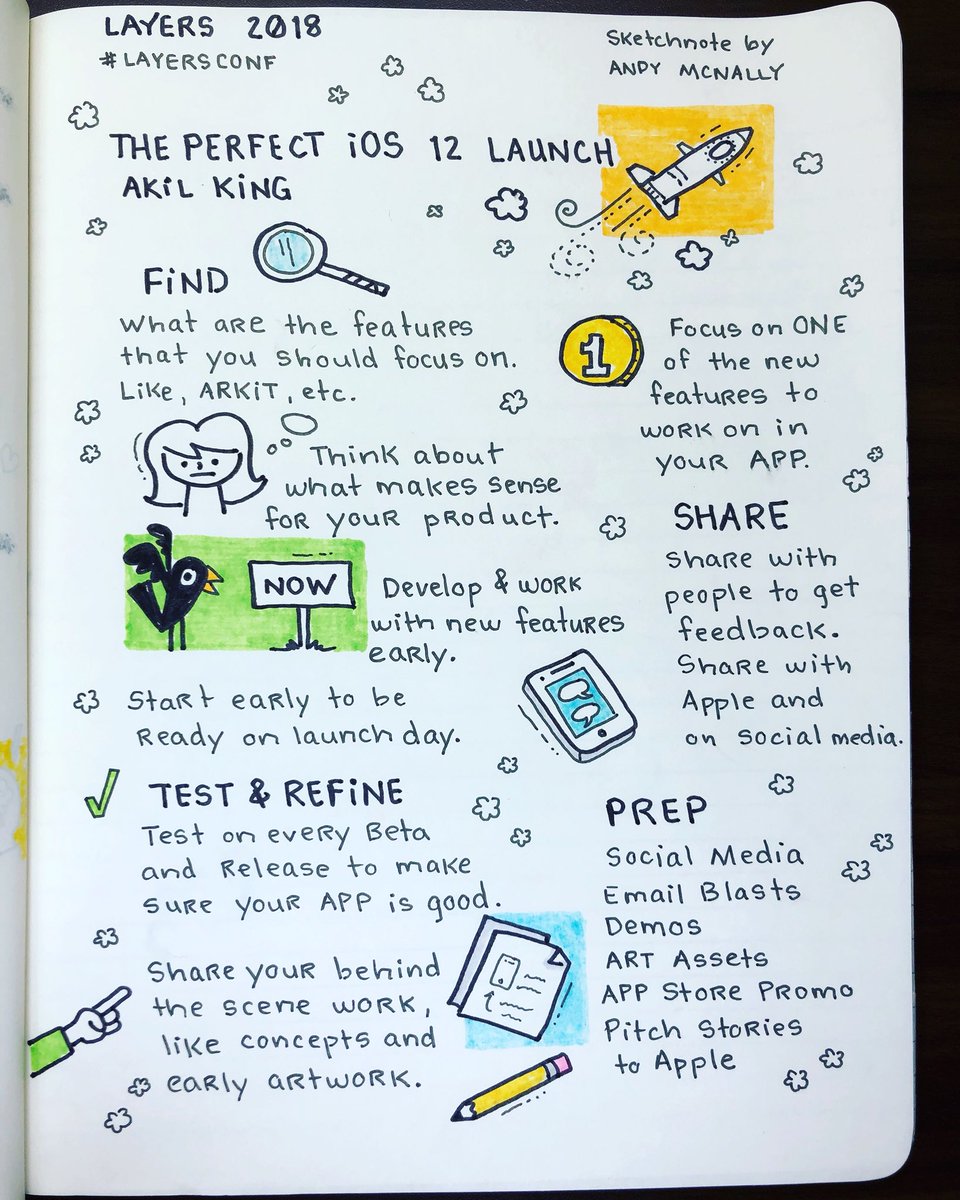 LAYERS 2018
#LAYERSCONF
Sketchnote by
ANDY MCNALLY
THE PERFECT iOS 12 LAUNCH
AKiL KiNG
FiND
What are the features
that you should focus on.
Like, ARKIT, etc.
Think about
what makes sense
for your product.
NOW
Develop & work
with new features
early.
Start early to be
Ready on launch day.
TEST & REFiNE
Test on every Beta
and Release to make
sure your APP is good.
Share your behind
the scene work,
like concepts and
early artwork.
1
Focus on ONE
of the new
features to
work on in
your APP.
SHARE
Share with
people to get
feedback.
Share with
Apple and
on social media.
PREP
Social Media
Email Blasts
Demos
ART Assets
APP Store Promo
Pitch Stories
to Apple